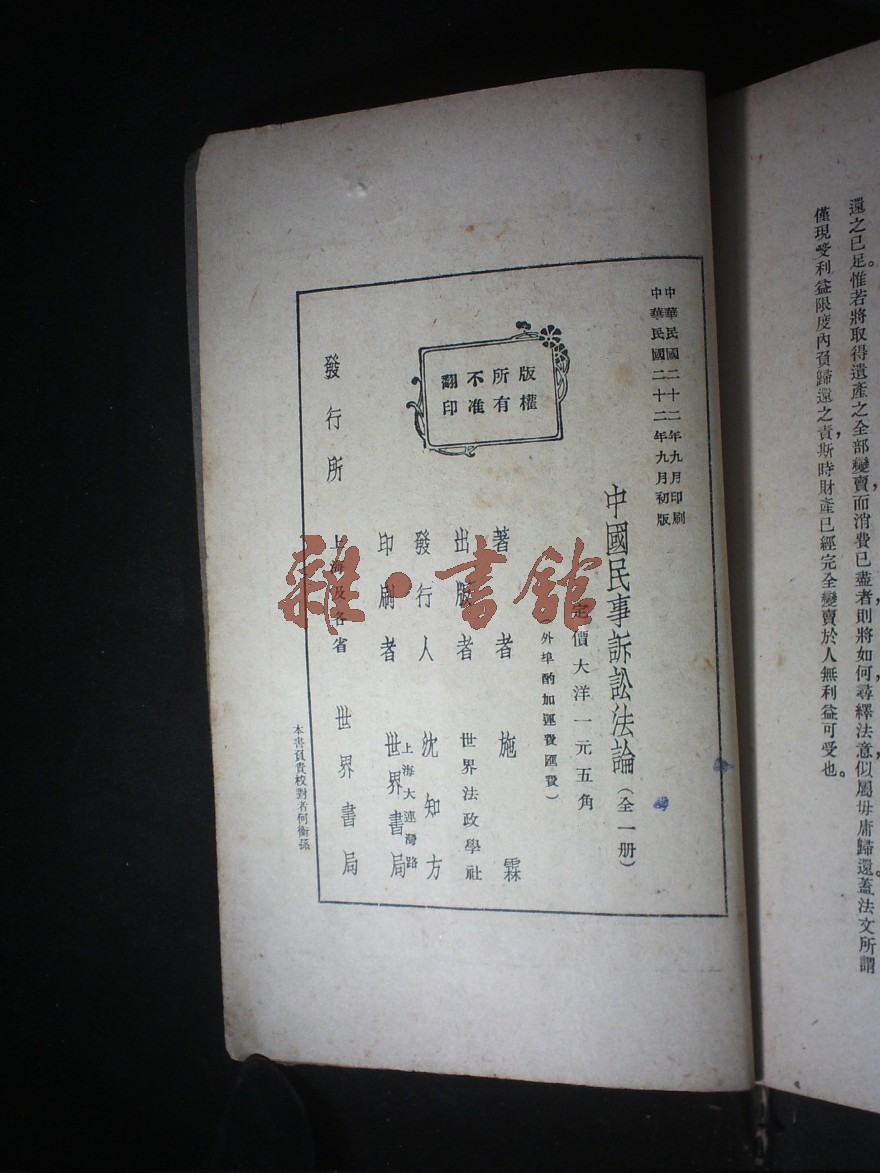 還之已足。惟若將取得遺產之全部變賣，而消費已盡者，則將如何尋繹法意，似屬毋庸歸還。蓋法文所謂
僅現受利益限度內負歸還之責，斯時財產已經完全變賣於人，無利益可受也。
中華民國二十二年九月印刷
中華民國二十二年九月初版
中國民事訴訟法論（全一册）
定價大洋一元五角
（外埠酌加運費匯費）
版權
所有
不准
翻印
著者 施霖
出版者 世界法政學社
發行人 沈知方
印刷者 上海大連灣路 世界書局
發行所 上海及各省 世界書局
本書負責校對者何衡孫
雜·書館